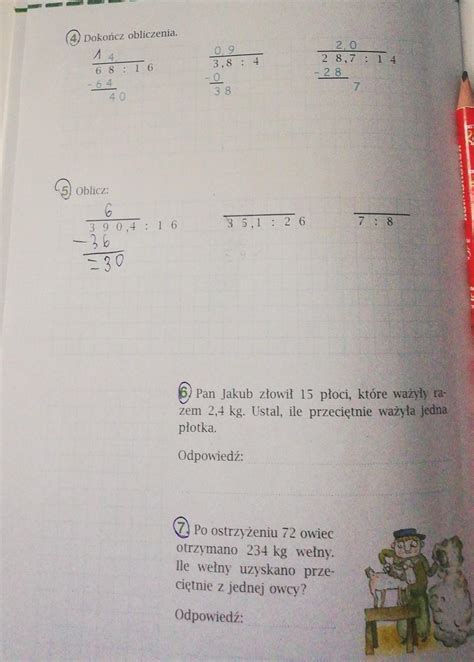 4. Dokończ obliczenia.
1 4
6 8 : 1 6
- 6 4
4 0
0, 9
3,8 : 4
- 0
3 8
2, 0
2 8,7 : 1 4
- 2 8
7
5. Oblicz:
6
3 9 0,4 : 1 6
- 3 6
= 3 0
3 5,1 : 2 6
7 : 8
6. Pan Jakub złowił 15 płoci, które ważyły ra-
zem 2,4 kg. Ustal, ile przeciętnie ważyła jedna
płotka.
Odpowiedź:
7. Po ostrzyżeniu 72 owiec
otrzymano 234 kg wełny.
Ile wełny uzyskano prze-
ciętnie z jednej owcy?
Odpowiedź: